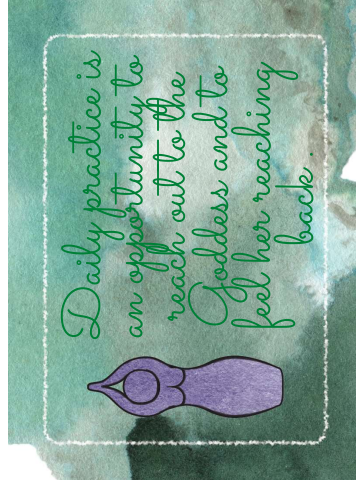 Daily practice is
an opportunity to
reach out to the
Goddess and to
feel her reaching
back.